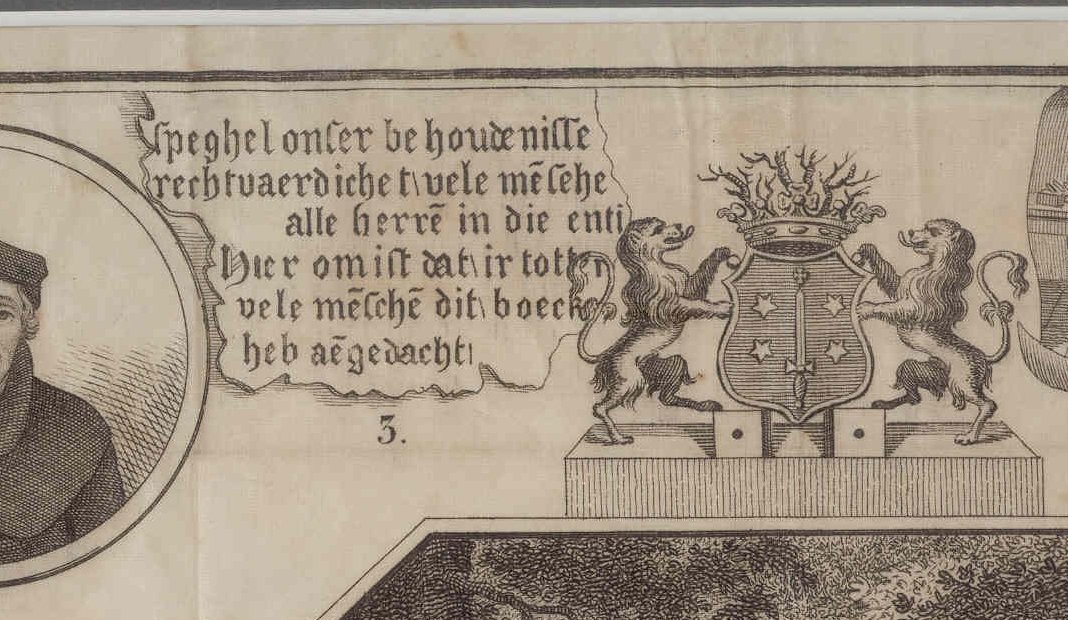 ſpeghel onſer be houdeniſſe
rechtvaerdichet vele mēſche
alle herrē in die enti
Hier om iſt dat ir totten
vele mēſchē dit boeck
heb aēgedacht
3.